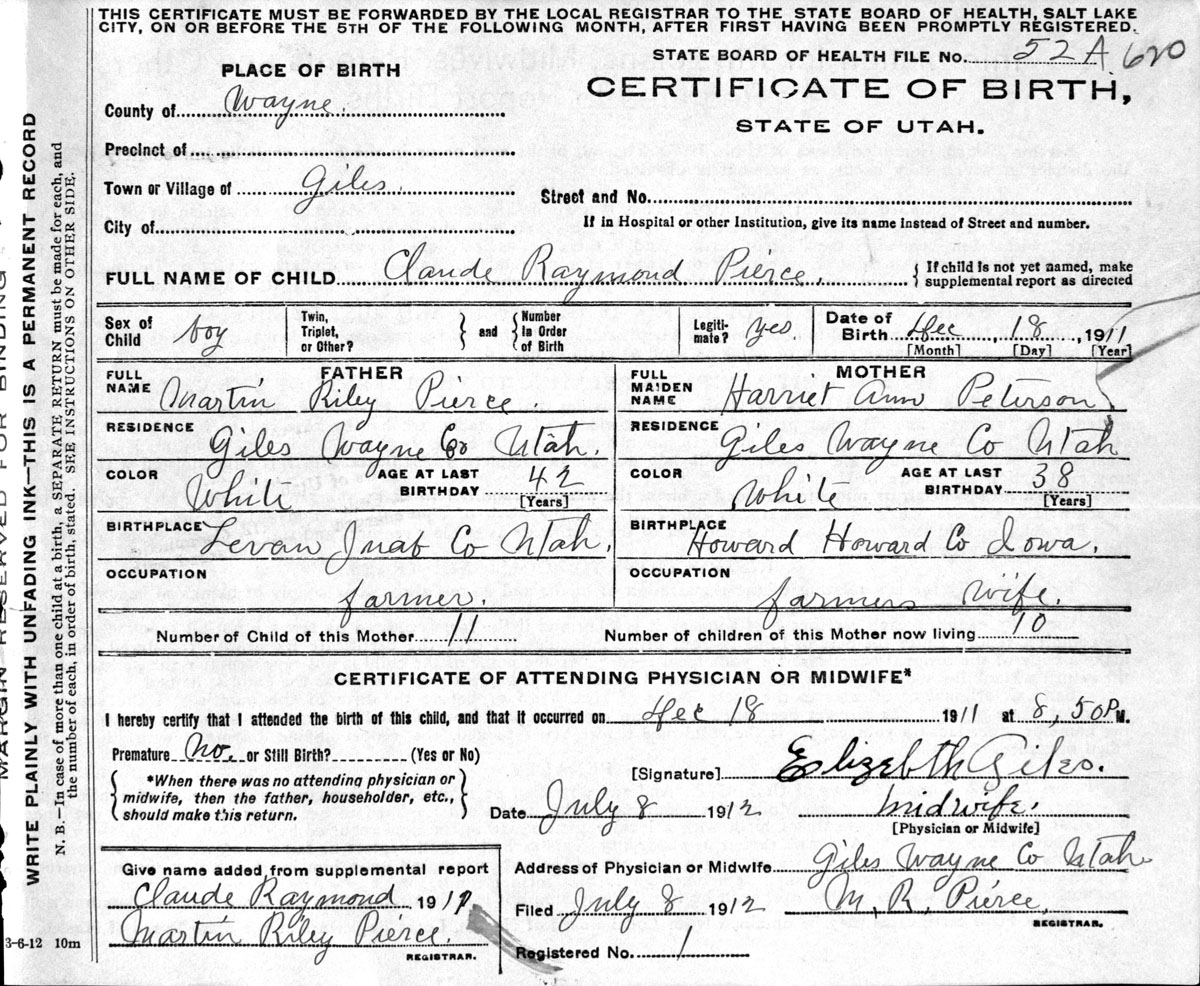 THIS CERTIFICATE MUST BE FORWARDED BY THE LOCAL REGISTRAR TO THE STATE BOARD OF HEALTH, SALT LAKE
CITY, ON OR BEFORE THE 5TH OF THE FOLLOWING MONTH, AFTER FIRST HAVING BEEN PROMPTLY REGISTERED.
STATE BOARD OF HEALTH FILE NO. 52A 620
PLACE OF BIRTH
CERTIFICATE OF BIRTH,
County of Wayne.
STATE OF UTAH.
Precinct of
Town or Village of Giles.
Street and No.
City of
If in Hospital or other Institution, give its name instead of Street and number.
FULL NAME OF CHILD Claude Raymond Pierce. { If child is not yet named, make
supplemental report as directed
Sex of Child boy
Twin, Triplet, or Other? } and { Number in Order of Birth
Legiti-mate? yes
Date of Birth Dec 18, 1911
[Month] [Day] [Year]
FATHER
FULL NAME Martin Riley Pierce.
MOTHER
FULL MAIDEN NAME Harriet Ann Peterson
RESIDENCE Giles Wayne Co Utah.
RESIDENCE Giles Wayne Co Utah
COLOR White AGE AT LAST BIRTHDAY 42 [Years]
COLOR White AGE AT LAST BIRTHDAY 38 [Years]
BIRTHPLACE Levan Juab Co Utah.
BIRTHPLACE Howard Howard Co Iowa.
OCCUPATION farmer.
OCCUPATION farmers wife.
Number of Child of this Mother 11 Number of children of this Mother now living 10
CERTIFICATE OF ATTENDING PHYSICIAN OR MIDWIFE*
I hereby certify that I attended the birth of this child, and that it occurred on Dec 18 1911 at 8,50 P.M.
Premature No. or Still Birth? (Yes or No)
*When there was no attending physician or
midwife, then the father, householder, etc.,
should make this return.
[Signature] Elizebth Giles.
Date July 8 1912 midwife.
[Physician or Midwife]
Give name added from supplemental report
Claude Raymond 191
Martin Riley Pierce.
REGISTRAR.
Address of Physician or Midwife Giles Wayne Co Utah
Filed July 8 1912 M. R. Pierce
REGISTRAR.
Registered No. 1
3-6-12 10m
MARGIN RESERVED FOR BINDING
WRITE PLAINLY WITH UNFADING INK—THIS IS A PERMANENT RECORD
N. B.—In case of more than one child at a birth, a SEPARATE RETURN must be made for each, and
the number of each, in order of birth, stated. SEE INSTRUCTIONS ON OTHER SIDE.